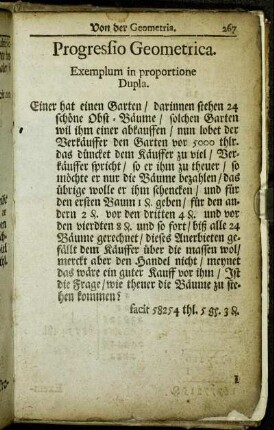 Von der Geometria. 267
Progressio Geometrica.
Exemplum in proportione
Dupla.
Einer hat einen Garten / darinnen stehen 24
schöne Obst-Bäume / solchen Garten
wil ihm einer abkauffen / nun lobet der
Verkäuffer den Garten vor 5000 thlr.
das düncket dem Käuffer zu viel / Ver-
käuffer spricht / so er ihm zu theuer / so
möchte er nur die Bäume bezahlen / das
übrige wolle er ihm schencken / und für
den ersten Baum 1 ₰. geben / für den an-
dern 2 ₰. vor den dritten 4 ₰. und vor
den vierdten 8 ₰. und so fort / biß alle 24
Bäume gerechnet / dieses Anerbieten ge-
fällt dem Käuffer über die massen wol /
mercket aber den Handel nicht / meynet
das wäre ein guter Kauff vor ihm / Ist
die Frage / wie theuer die Bäume zu ste-
hen kommen?
facit 58254 thl. 5 gs. 3 ₰.